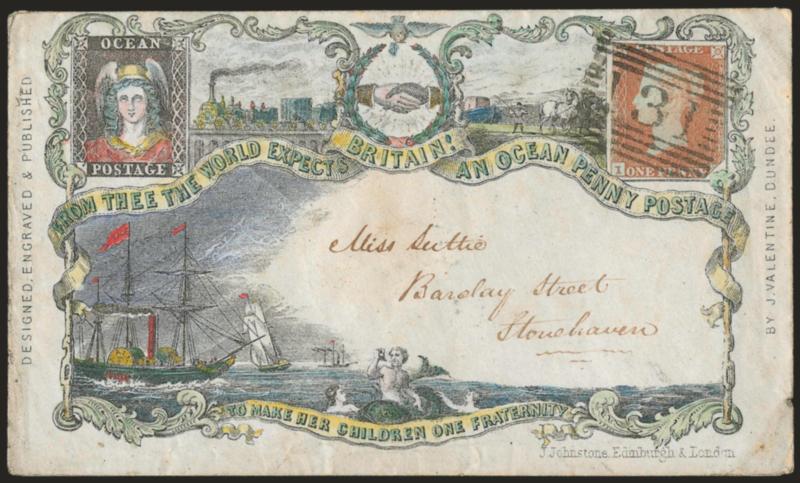 OCEAN
POSTAGE
POSTAGE
ONE PENNY
37
BRITAIN!
FROM THEE THE WORLD EXPECTS
AN OCEAN PENNY POSTAGE
DESIGNED, ENGRAVED & PUBLISHED
BY J. VALENTINE, DUNDEE.
Miss Suttie
Barclay Street
Stonehaven
TO MAKE HER CHILDREN ONE FRATERNITY
J. Johnstone, Edinburgh & London